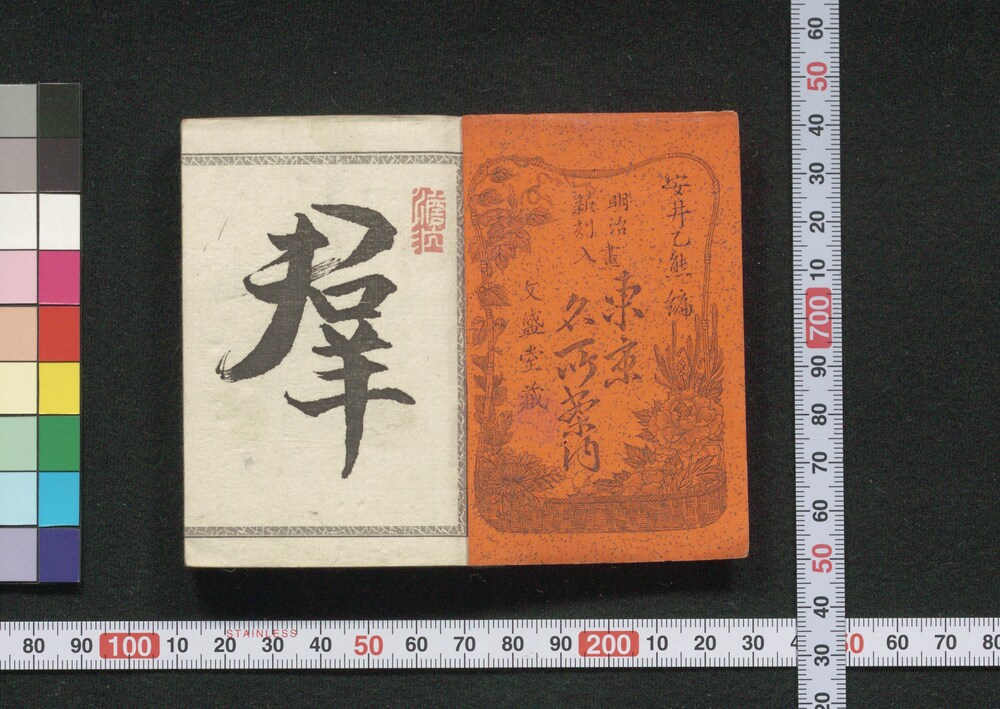 安井乙熊編
明治畫
新刻入
東京
名所案内
文盛堂藏
羣
80 90 100 10 20 30 40 50 60 70 80 90 200 10 20 30 50 60 70 80
STAINLESS
60
50
40
30
20
10
700
90
80
70
60
50
40
30
20